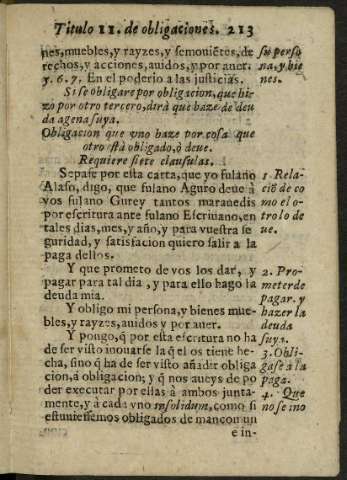 Titulo 11. de obligaciones. 213
nes, muebles, y rayzes, y semouiẽtes, de
rechos, y acciones, auidos, y por auer.
y 6. 7. En el poderio a las justicias.
Si se obligare por obligacion, que hi-
zo por otro tercero, dirà que haze de deu
da agena suya.
Obligacion que vno haze por cosa que
otro està obligado, ò deue.
Requiere siete clausulas.
Sepase por esta carta, que yo fulano
Alaso, digo, que fulano Aguro deue à
vos fulano Gurey tantos marauedis
por escritura ante fulano Escriuano, en
tales dias, mes, y año, y para vuestra se
guridad, y satisfacion quiero salir a la
paga dellos.
Y que prometo de vos los dar, y
pagar para tal dia, y para ello hago la
deuda mia.
Y obligo mi persona, y bienes mue-
bles, y rayzes, auidos y por auer.
Y pongo, q̃ por esta escritura no ha
de ser visto inouarse la q̃ el os tiene he-
cha, sino q̃ ha de ser visto añadir obliga
cion, a obligacion; y q̃ nos aueys de po
der executar por ellas à ambos junta-
mente, y à cada vno insolidum, como si
estuuiessemos obligados de mancon un
e in-
su perso
na, y bie
nes.
1 Rela-
ciõ de co
mo el o-
tro lo de
ue.
2. Pro-
meter de
pagar. y
hazer la
deuda
suya.
3. Obli-
gase à la
paga.
4. Que
no se ino